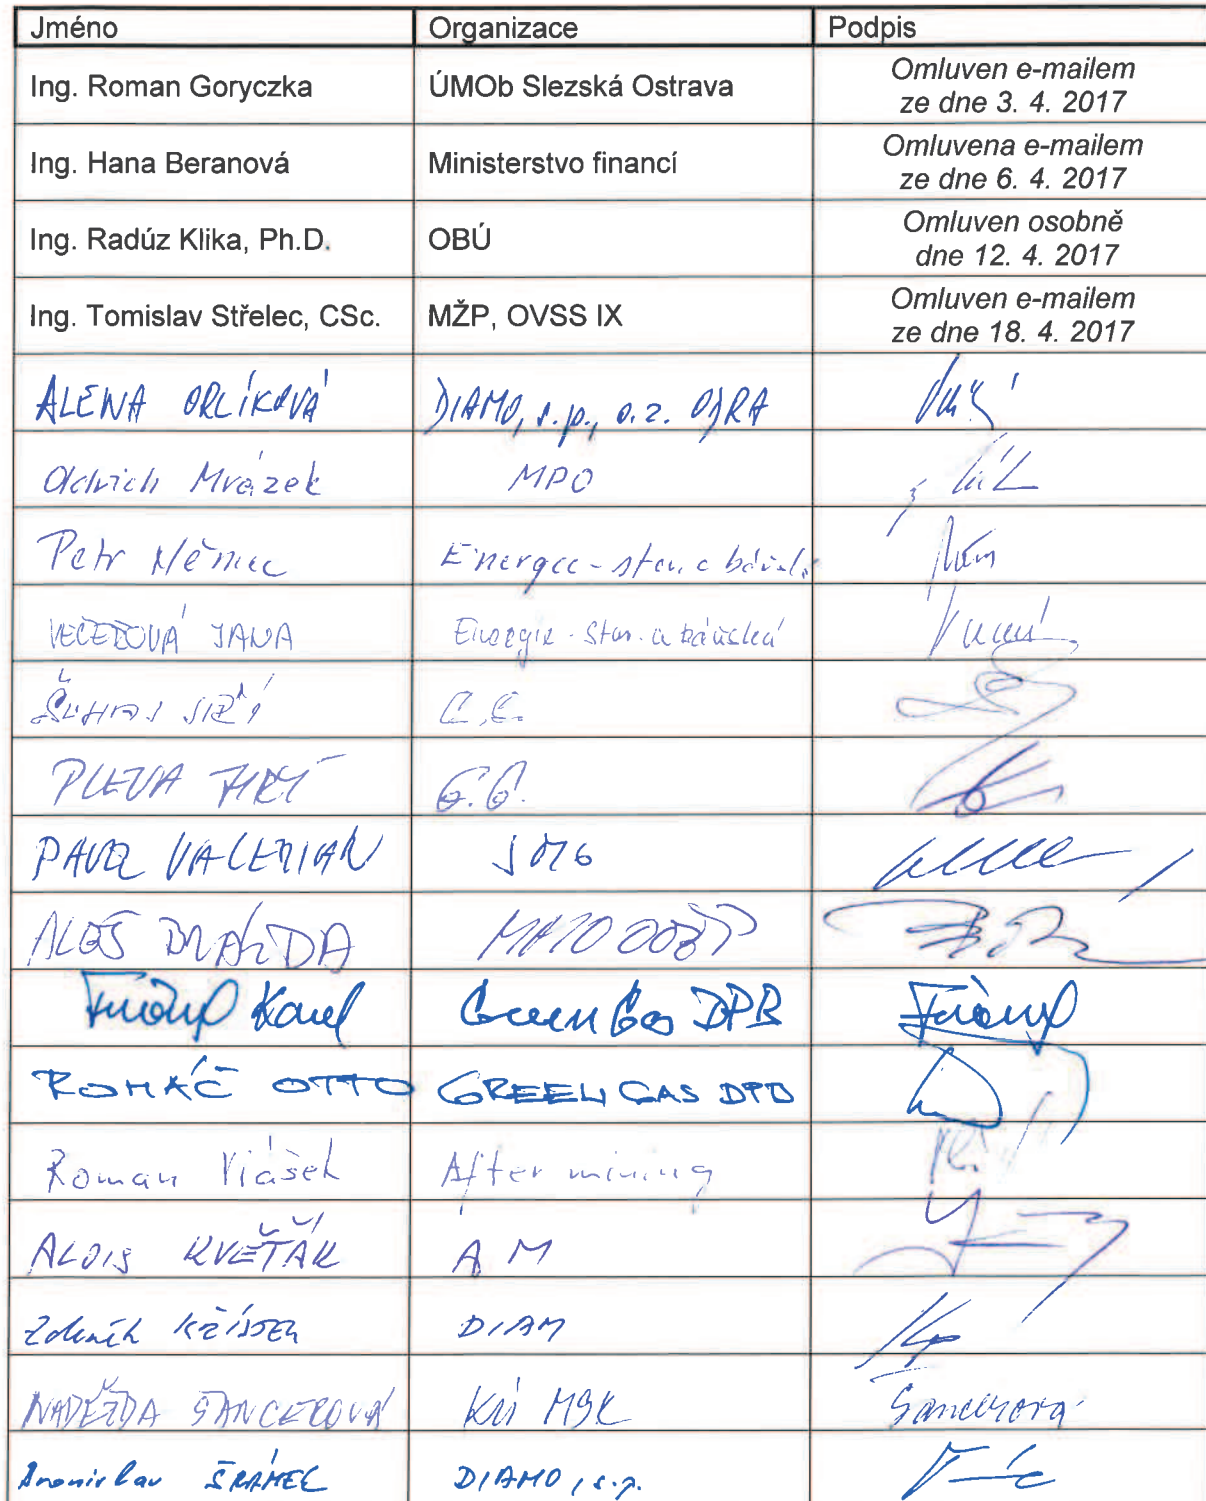 Jméno Organizace Podpis
Ing. Roman Goryczka ÚMOb Slezská Ostrava Omluven e-mailem
ze dne 3. 4. 2017
Ing. Hana Beranová Ministerstvo financí Omluvena e-mailem
ze dne 6. 4. 2017
Ing. Radúz Klika, Ph.D. OBÚ Omluven osobně
dne 12. 4. 2017
Ing. Tomislav Střelec, CSc. MŽP, OVSS IX Omluven e-mailem
ze dne 18. 4. 2017
ALENA ORLÍKOVÁ DIAMO, s.p., o.z. ODRA
Oldřich Mrázek MPO
Petr Němec Energie - stav. a báňská
JANA Energie - stav. a báňská
JIŘÍ
PLEVA JIŘÍ G.G.
PAVEL VALERIAN
ALEŠ
Karel Green Gas DPB
ROMÁČ OTTO GREEN GAS DPB
Roman Vlášek After mining
ALOIS KVĚŤÁK A M
Zdeněk DIAM
NADĚŽDA SANCEROVÁ KÚ MSK Sancerová
Bronislav ŠRÁMEK DIAMO, s.p.